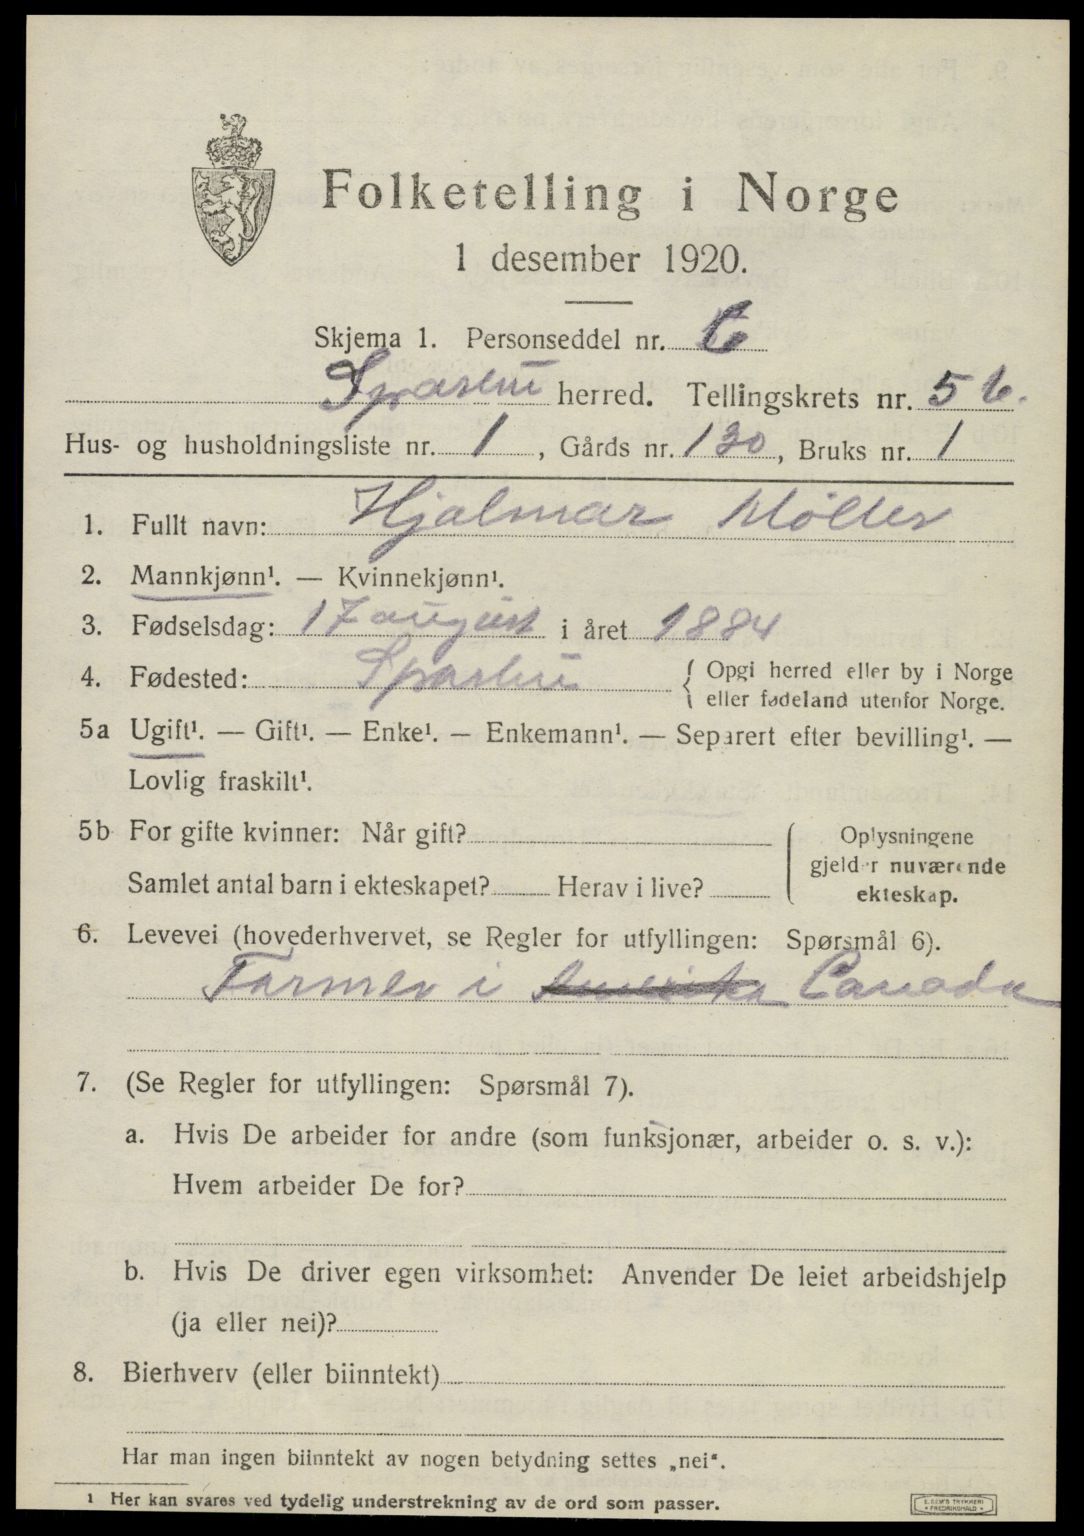 Folketelling i Norge
1 desember 1920.
Skjema 1. Personseddel nr. 6
herred. Tellingskrets nr. 5 b.
Hus- og husholdningsliste nr. 1, Gårds nr. 130, Bruks nr. 1
1. Fullt navn: Hjalmar Møller
2. Mannkjønn¹. — Kvinnekjønn¹.
3. Fødselsdag: 17 august i året 1884
4. Fødested: { Opgi herred eller by i Norge
eller fødeland utenfor Norge.
5a Ugift¹. — Gift¹. — Enke¹. — Enkemann¹. — Separert efter bevilling¹. —
Lovlig fraskilt¹.
5b For gifte kvinner: Når gift?
Samlet antal barn i ekteskapet? Herav i live?
{ Oplysningene
gjelder nuværende
ekteskap.
6. Levevei (hovederhvervet, se Regler for utfyllingen: Spørsmål 6).
Farmer i Amerika Canada
7. (Se Regler for utfyllingen: Spørsmål 7).
a. Hvis De arbeider for andre (som funksjonær, arbeider o. s. v.):
Hvem arbeider De for?
b. Hvis De driver egen virksomhet: Anvender De leiet arbeidshjelp
(ja eller nei)?
8. Bierhverv (eller biinntekt)
Har man ingen biinntekt av nogen betydning settes „nei".
¹ Her kan svares ved tydelig understrekning av de ord som passer.